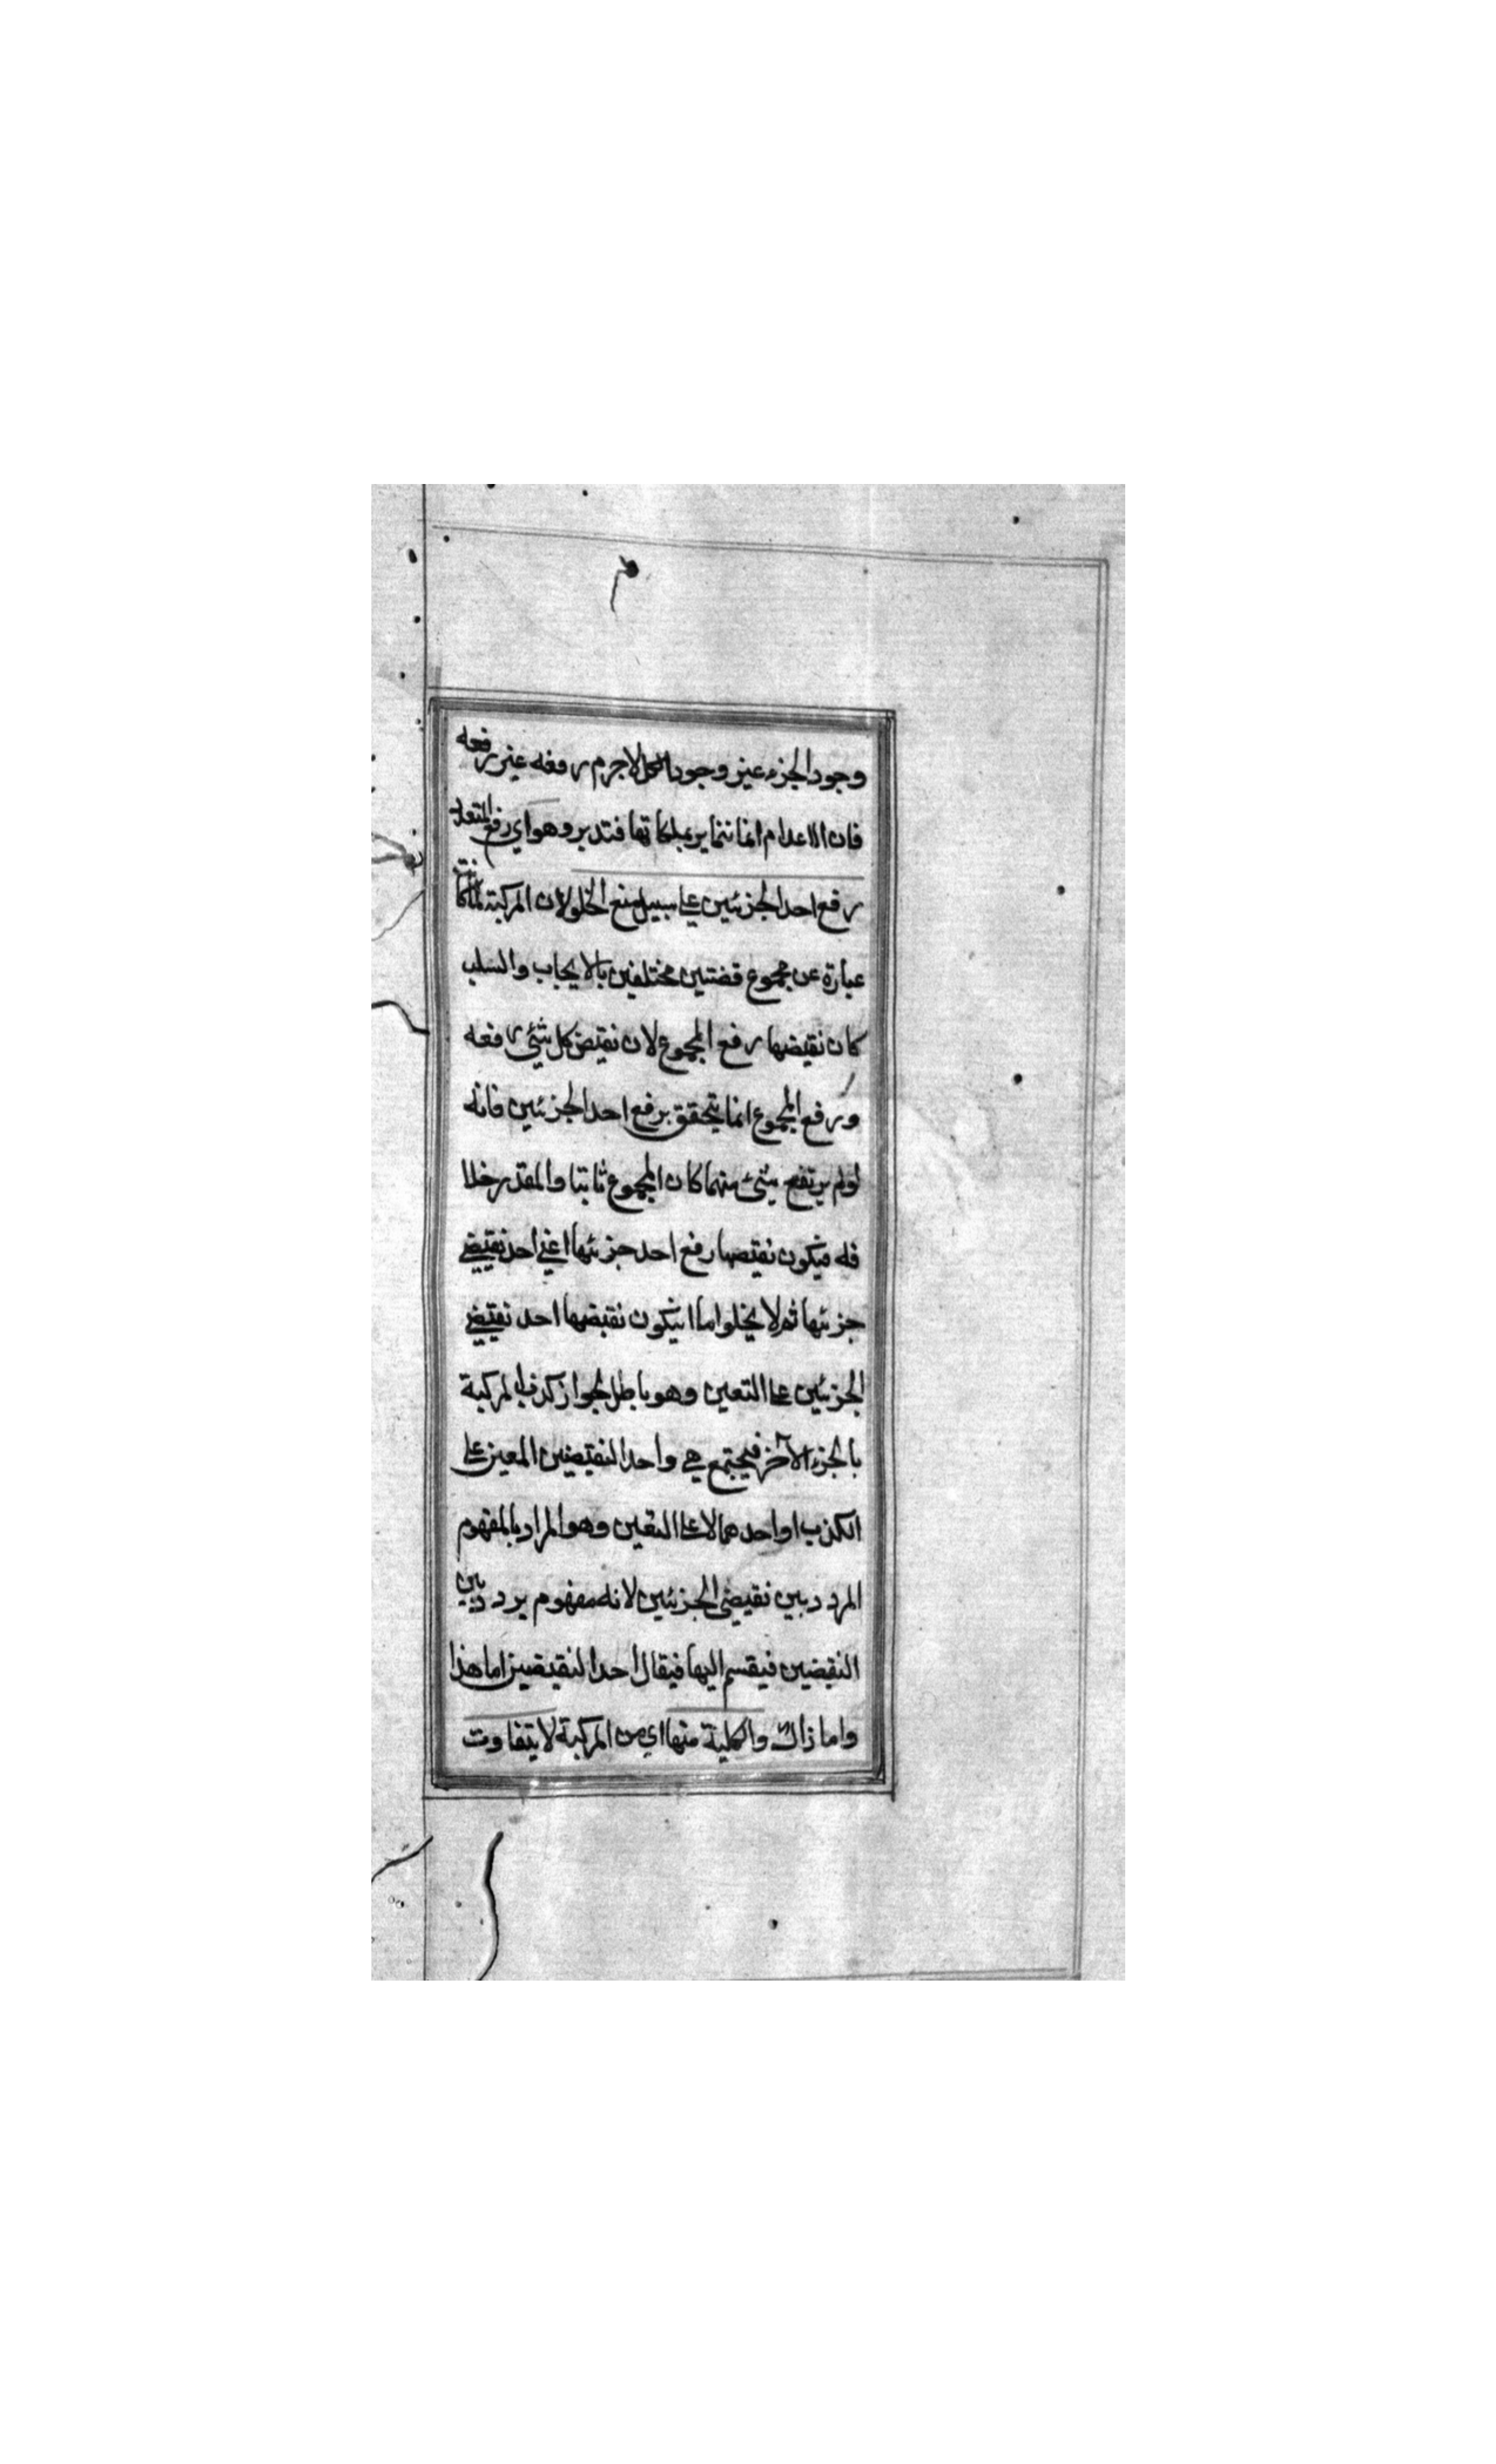 وجود الجزء عين وجود الكل لاجرم رفعه عين رفعه
فان الاعدام انما تتمايز بملكاتها فتدبر وهو اي رفع المتعدد
رفع احد الجزئين على سبيل منع الخلو لان المركبة لما كانت
عبارة عن مجموع قضتين مختلفين بالايجاب والسلب
كان نقيضها رفع المجموع لان نقيض كل شئ رفعه
ورفع المجموع انما يتحقق برفع احد الجزئين فانه
لولم يرتفع شئ منهما كان المجموع ثابتا والمقدر خلا
فه فيكون نقيضها رفع احد جزئيها اعني احد نقيضي
جزئيها ثم لا يخلو اما ان يكون نقيضها احد نقيضي
الجزئين على التعين وهو باطل لجواز كذب المركبة
بالجزء الآخر فيجتمع هي واحد النقيضين المعين على
الكذب او احدهما لا على التعين وهو المراد بالمفهوم
المردد بين نقيضي الجزئين لانه مفهوم يردد بين
النقيضين فيقسم اليها فيقال احد النقيضين اما هذا
واما ذاك والكلية منها اي من المركبة لا يتفاوت